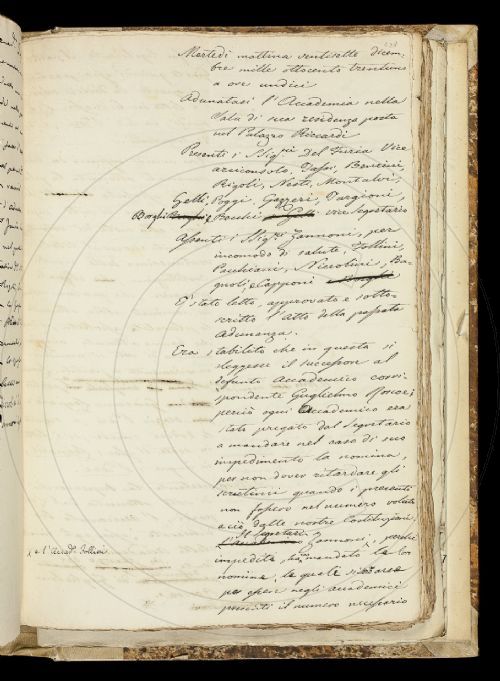 Martedì mattina ventisette dicem-
bre mille ottocento trentuno
a ore undici
Adunatasi l'Accademia nella
Sala di sua residenza posta
nel Palazzo Riccardi
Presenti i Sigri Del Furia Vice
arciconsolo, Tassi, Bencini,
Rigoli, Nesti, Montalvi,
Gelli, Poggi, Gazzeri, Targioni,
Borghi, Becchi vice Segretario
Assenti i Sigri Zannoni, per
incomodo di salute, Follini,
Pacchiani, Niccolini, Ba-
gnoli, e Capponi
È stato letto, approvato e sotto-
scritto l'Atto della passata
Adunanza.
Era stabilito che in questa si
eleggesse il successore al
defunto Accademico corri-
spondente Guglielmo Roscoe;
perciò ogni Accademico era
stato pregato dal Segretario
a mandare nel caso di suo
impedimento la nomina,
per non dover ritardare gli
scrutinii quando i presenti
non fossero nel numero voluto
a ciò dalle nostre Costituzioni;
Il Segretario
Zannoni, perché
e l'Accad. Follini
impedito, mandato la
nomina, la quale
per essere negli accademici
presenti il numero necessario